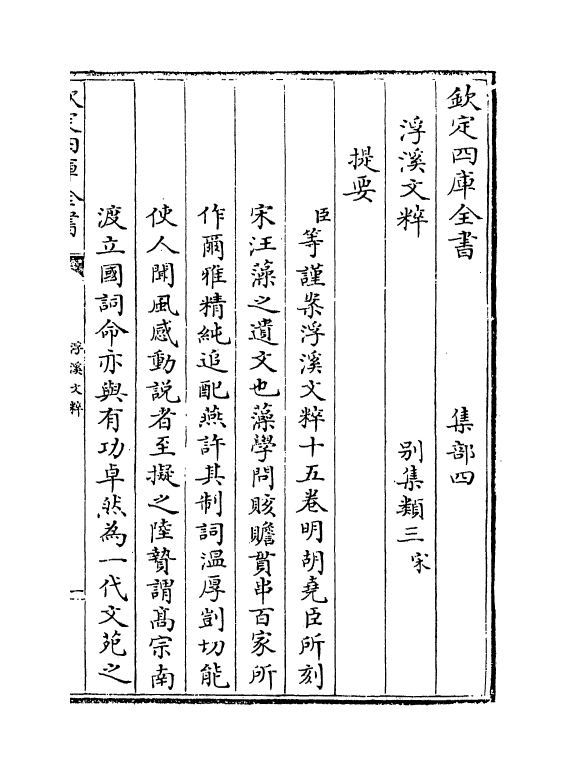 欽定四庫全書　集部四
浮溪文粹　别集類三宋
提要
臣等謹案浮溪文粹十五卷明胡堯臣所刻
宋汪藻之遺文也藻學問賅贍貫串百家所
作爾雅精純追配燕許其制詞溫厚剴切能
使人聞風感動説者至擬之陸贄謂髙宗南
渡立國詞命亦與有功卓然為一代文苑之
欽定四庫全書
浮溪文粹
一